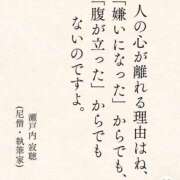 人の心が離れる理由はね、
「嫌いになった」からでも、
「腹が立った」からでも
ないのですよ。
瀬戸内 寂聴
(尼僧・執筆家)